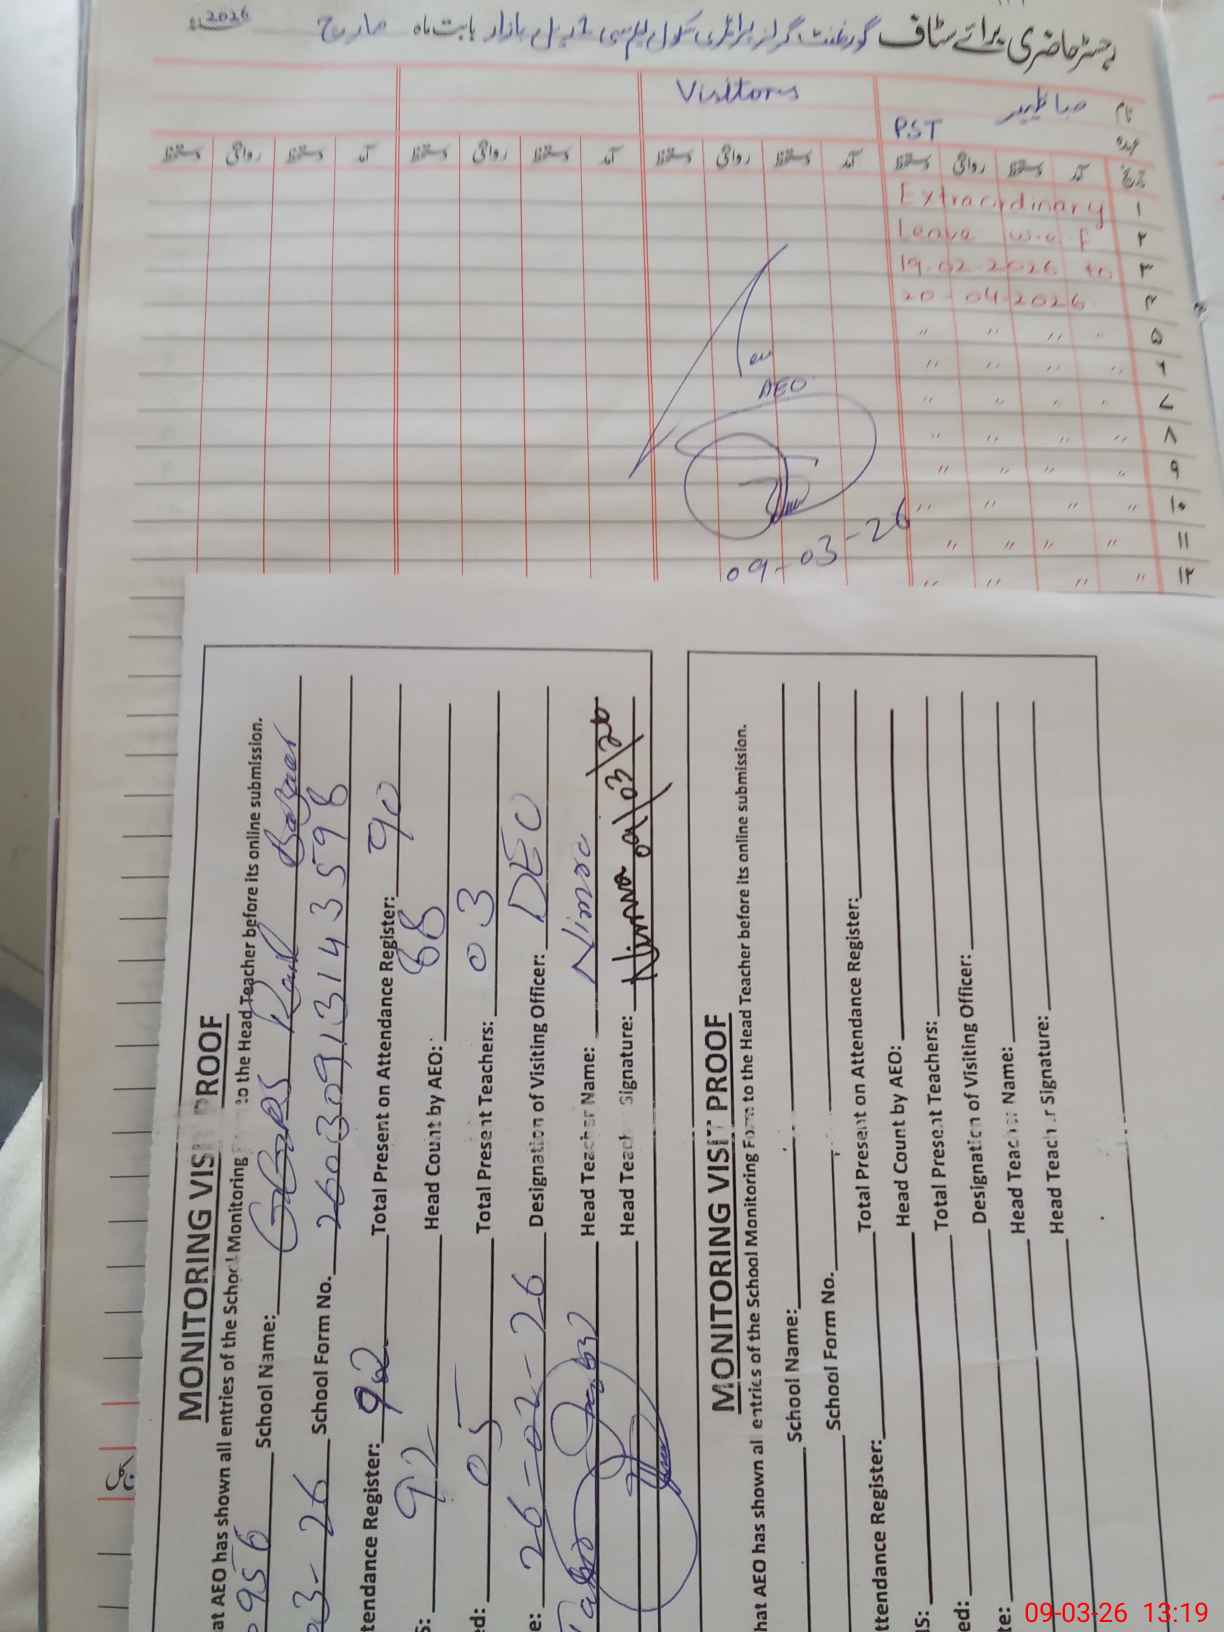 رجسٹر حاضری برائے سٹاف گورنمنٹ گرلز پرائمری سکول بازار بابت ماہ مارچ 2026
نام صبا Visitors
عہدہ PST
تاریخ آمد دستخط روانگی دستخط آمد دستخط روانگی دستخط آمد دستخط روانگی دستخط آمد دستخط روانگی دستخط
۱ Extraordinary
۲ Leave w.e.f
۳ 19.02.2026 to
۴ 20-04-2026
۵ " " " "
۶ " " " "
۷ " " " "
۸ " " " "
۹ " " " "
۱۰ " " " "
۱۱ " " " "
۱۲ " " " "
AEO
09-03-26
MONITORING VISIT PROOF
hat AEO has shown all entries of the School Monitoring Form to the Head Teacher before its online submission.
956 School Name: GGPS Rail Bazaar
03-26 School Form No. 26030913143598
ttendance Register: 92 Total Present on Attendance Register: 90
S: 92 Head Count by AEO: 88
ed: 05 Total Present Teachers: 03
e: 26-02-26 Designation of Visiting Officer: DEO
Head Teacher Name: Nimra
Head Teacher Signature: Nimra 09/03/26
MONITORING VISIT PROOF
hat AEO has shown all entries of the School Monitoring Form to the Head Teacher before its online submission.
School Name:
School Form No.
ttendance Register: Total Present on Attendance Register:
IS: Head Count by AEO:
ed: Total Present Teachers:
te: Designation of Visiting Officer:
Head Teacher Name:
Head Teacher Signature:
09-03-26 13:19